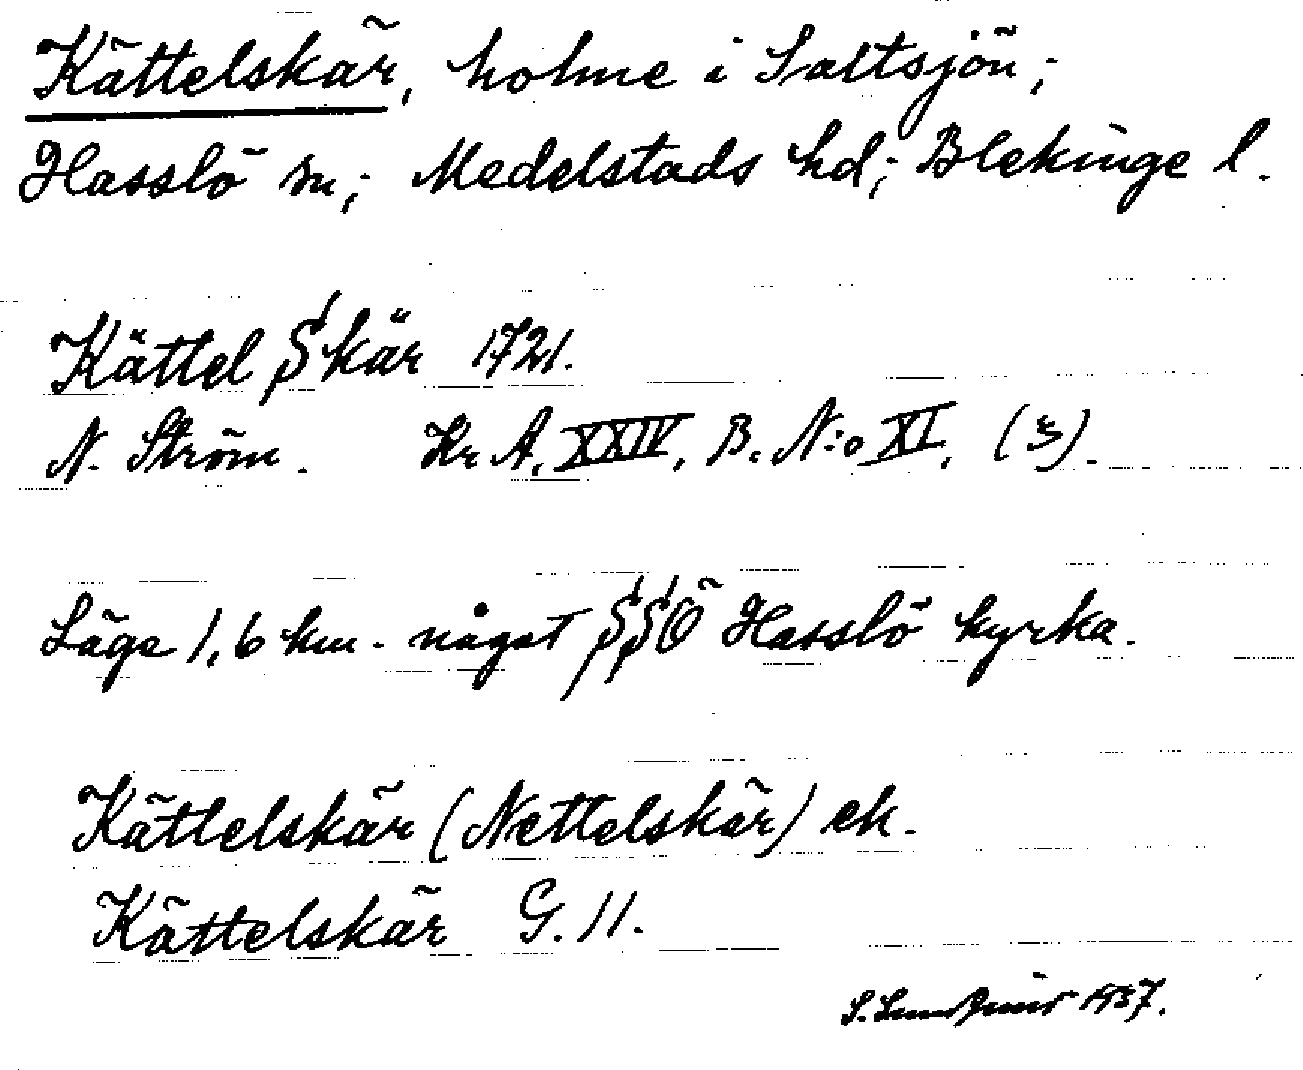 Kättelskär, holme i Saltsjön;
Hasslö sn; Medelstads hd; Blekinge l.
Kättel Skär 1721.
N. Ström. Kr A. XXIV, B. N:o XI, (ξ).
Läge 1,6 km. något SSÖ Hasslö kyrka.
Kättelskär (Nettelskär) ek.
Kättelskär G. 11.
S. 1937.